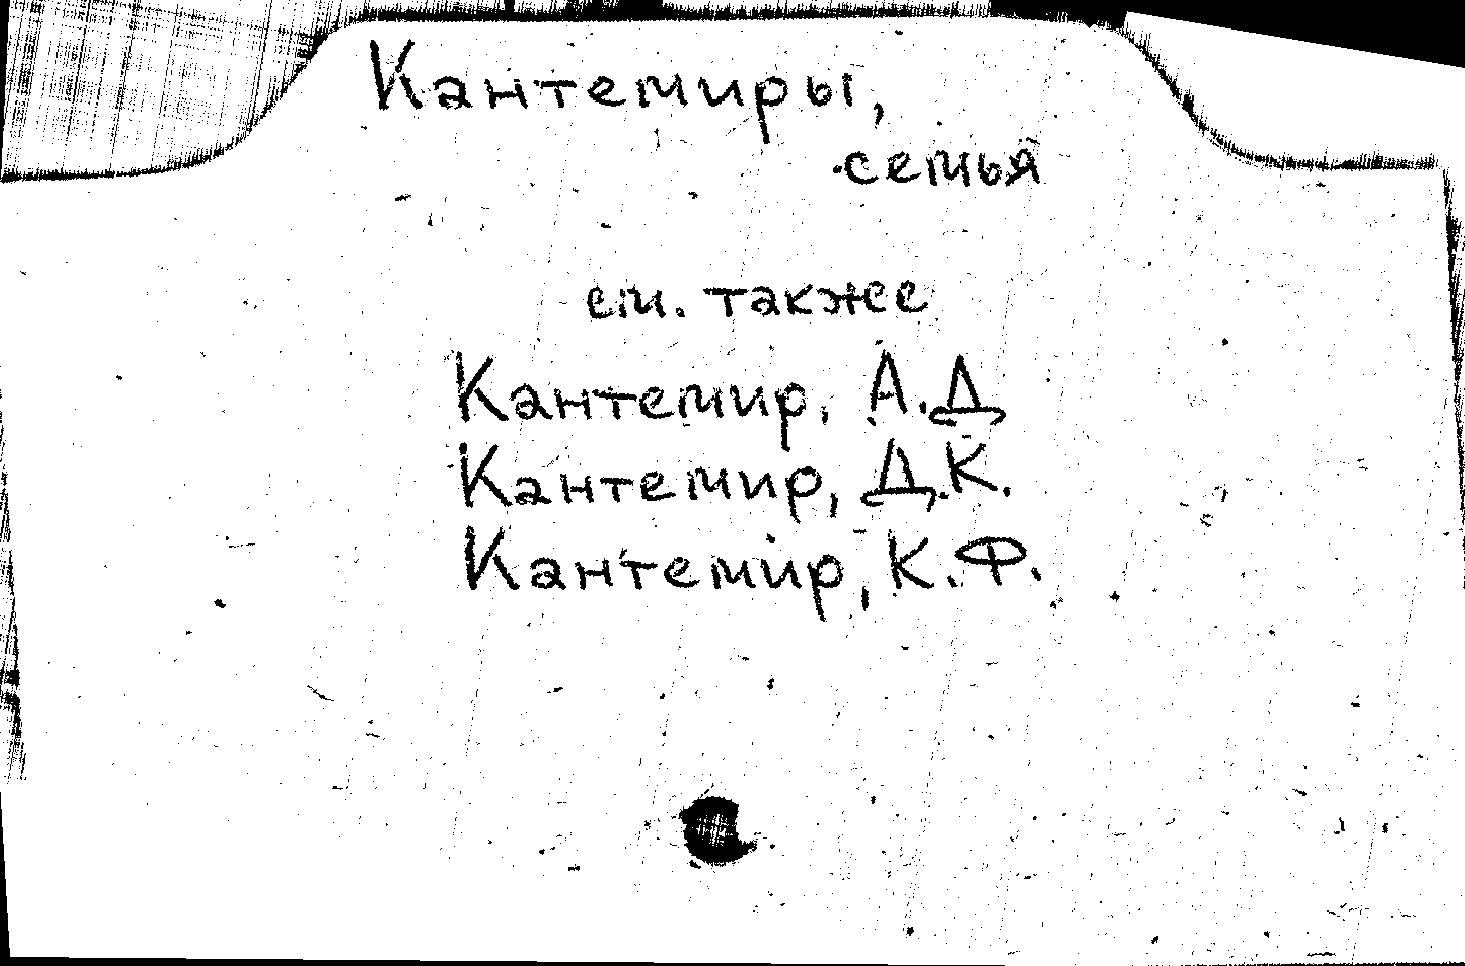 Кантемиры,
семья
см. также
Кантемир, А.Д
Кантемир, Д.К.
Кантемир, К.Ф.